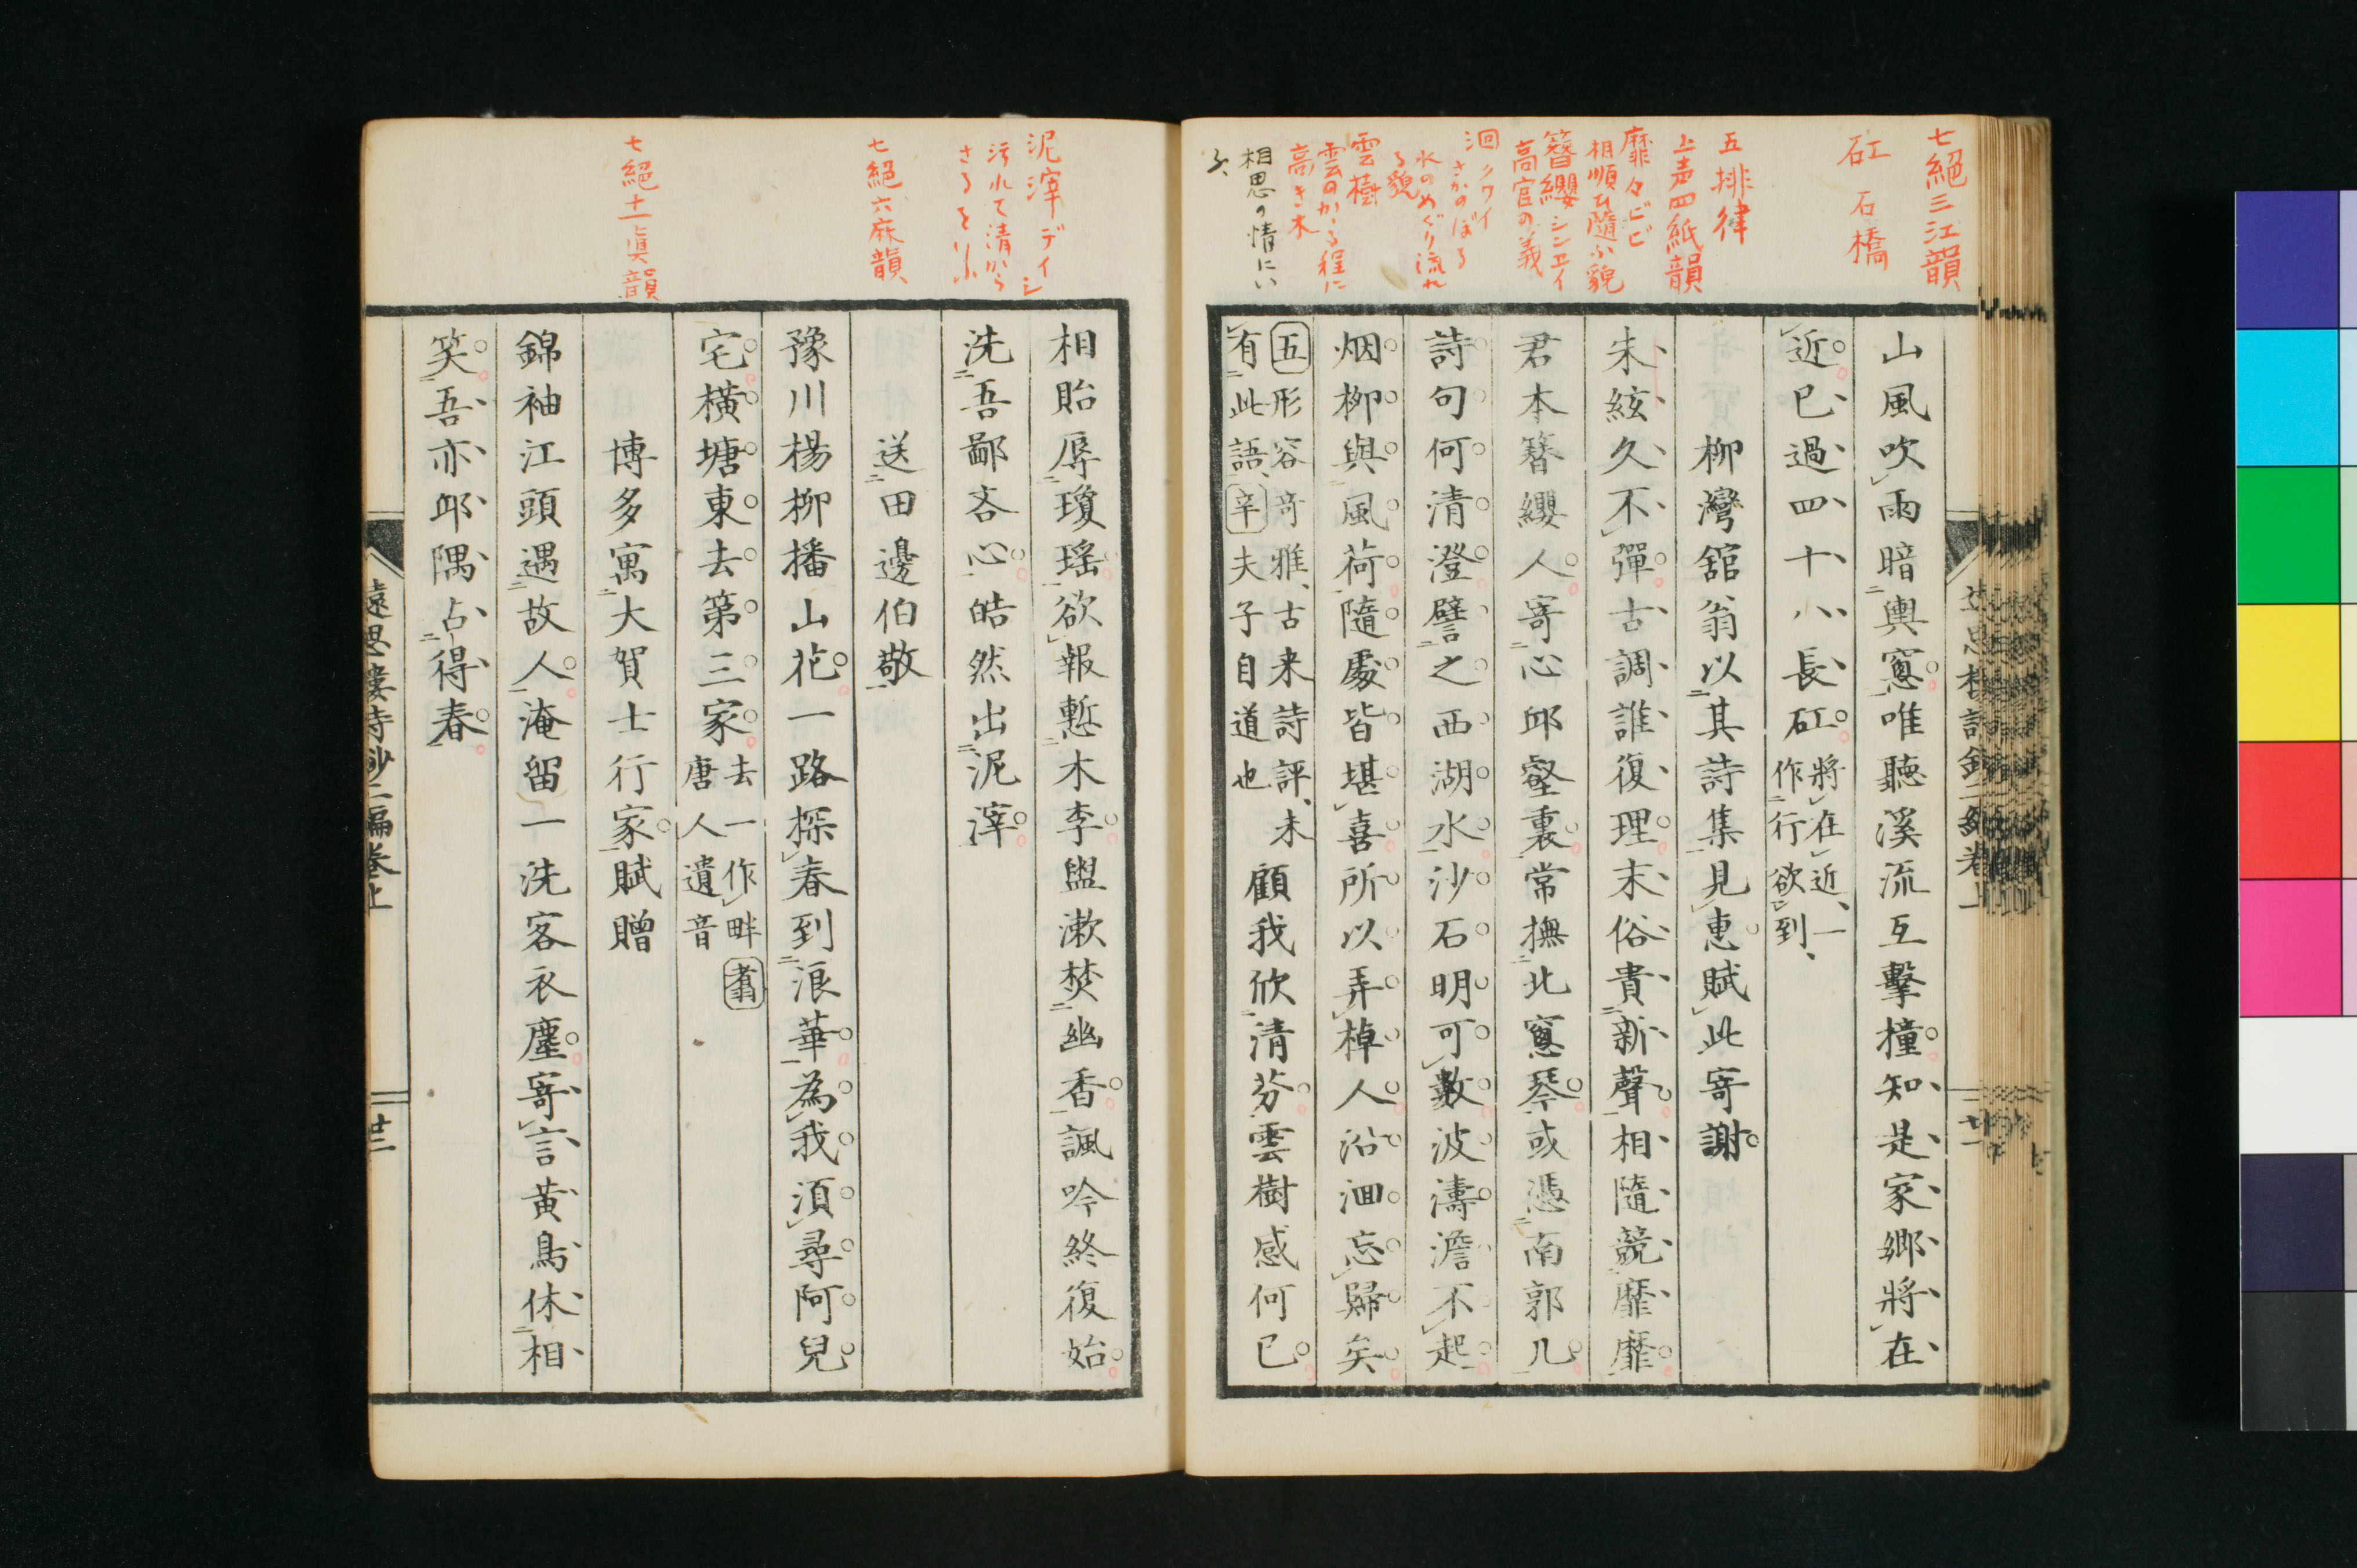 七絕三江韻
矼 石橋
五排律
上声四紙韻
靡々ビビ
相順ひ隨ふ貌
簪纓シンエイ
高官の義
洄クワイ
さかのぼる
水のめぐり流れ
る貌
雲樹
雲のかゝる程に
高き木
相思の情にい
ふ
山風吹雨暗輿窻唯聽溪流互擊撞知是家鄉將在
近巳過四十八長矼將在近、一
作行欲到、
柳灣舘翁以其詩集見惠賦此寄謝
朱絃久不彈古調誰復理末俗貴新聲相隨競靡靡
君本簪纓人寄心邱壑裏常撫北窻琴或憑南郭几
詩句何清澄譬之西湖水沙石明可數波濤澹不起
烟柳與風荷隨處皆堪喜所以弄棹人沿洄忘歸矣
五形容奇雅、古来詩評、未
有此語、辛夫子自道也
顧我欣清芬雲樹感何已
泥滓デイシ
汚れて清から
さるをいふ
七絕六麻韻
七絕十一眞韻
相貽辱瓊瑤欲報慙木李盥漱焚幽香諷吟終復始
洗吾鄙吝心皓然出泥滓
送田邊伯敬
豫川楊柳播山花一路探春到浪華為我須尋阿兒
宅橫塘東去第三家去一作畔
唐人遺音
博多寓大賀士行家賦贈
錦袖江頭遇故人淹留一洗客衣塵寄言黃鳥休相
笑吾亦邱隅占得春
遠思樓詩鈔二編卷上
廿二